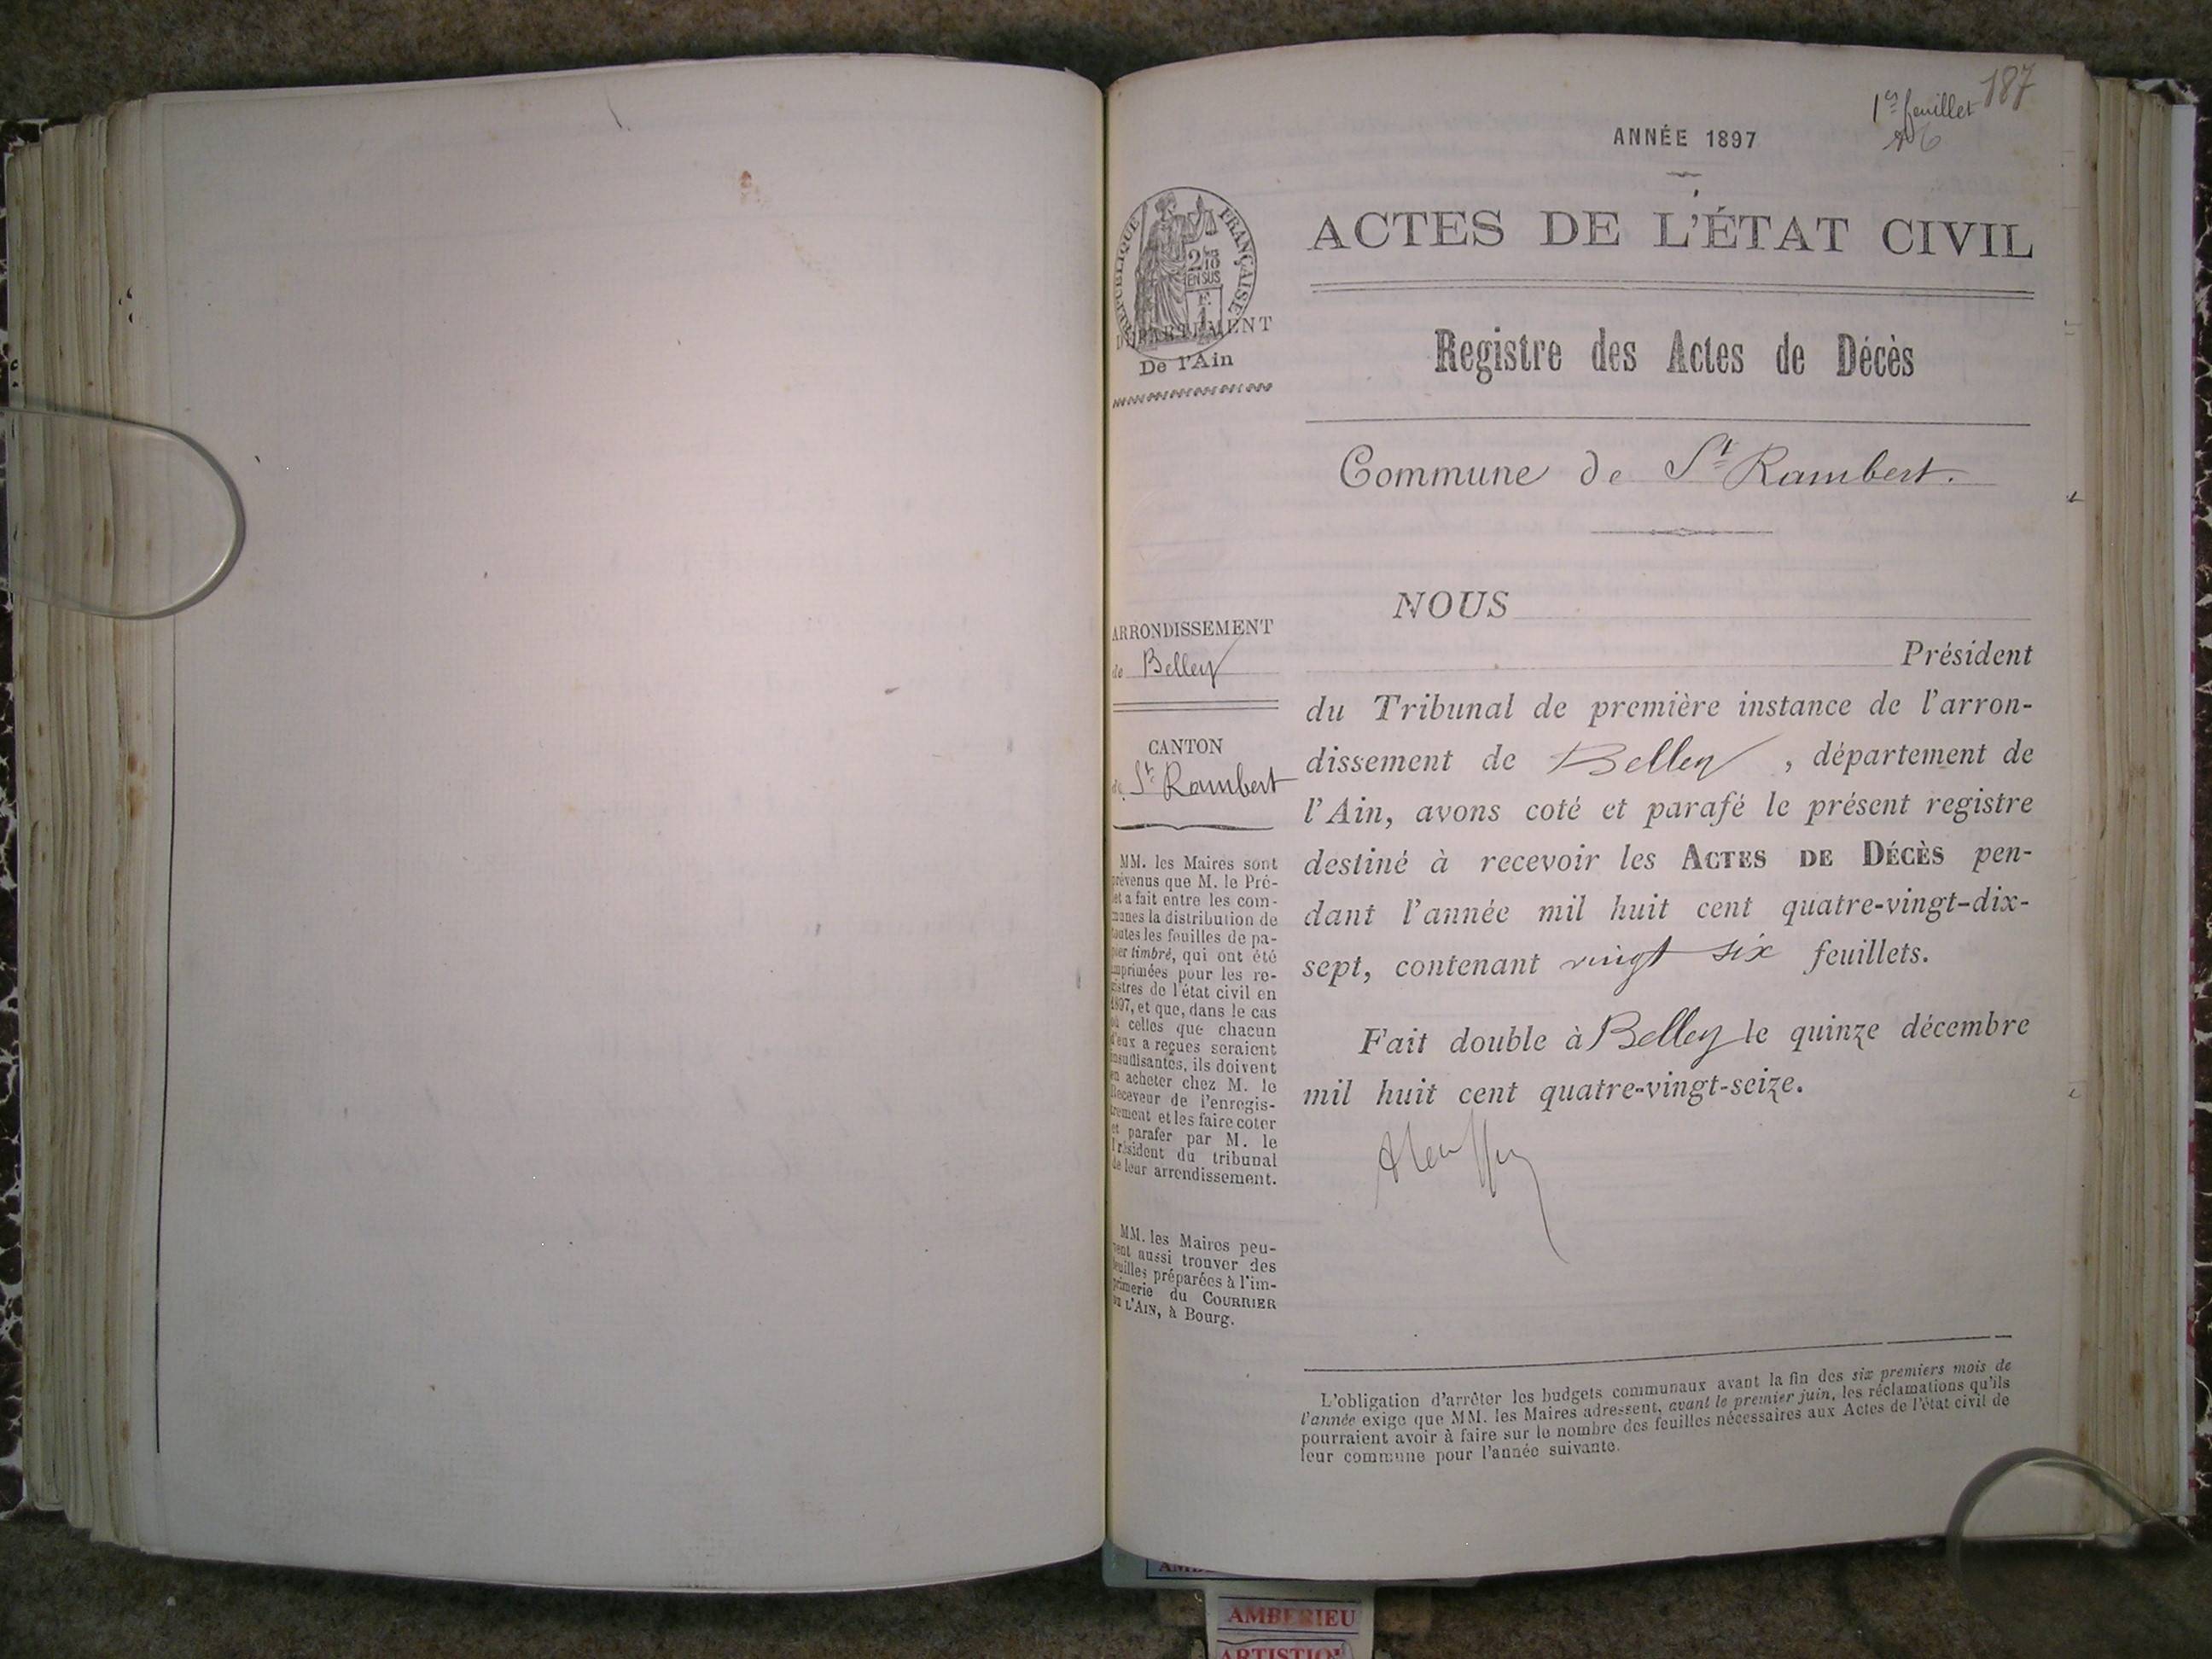 187
1er feuillet
ANNÉE 1897
ACTES DE L'ÉTAT CIVIL
RÉPUBLIQUE FRANÇAISE
2/10 EN SUS
DÉPARTEMENT
De l'Ain
Registre des Actes de Décès
Commune de St Rambert.
ARRONDISSEMENT
de Belley
CANTON
de St Rambert
MM. les Maires sont
prévenus que M. le Pré-
fet a fait entre les com-
munes la distribution de
toutes les feuilles de pa-
pier timbré, qui ont été
imprimées pour les re-
gistres de l'état civil en
1897, et que, dans le cas
où celles que chacun
d'eux a reçues seraient
insuffisantes, ils doivent
en acheter chez M. le
Receveur de l'enregis-
trement et les faire coter
et parafer par M. le
Président du tribunal
de leur arrondissement.
MM. les Maires peu-
vent aussi trouver des
feuilles préparées à l'im-
primerie du COURRIER
DE L'AIN, à Bourg.
NOUS
Président
du Tribunal de première instance de l'arron-
dissement de Belley, département de
l'Ain, avons coté et parafé le présent registre
destiné à recevoir les ACTES DE DÉCÈS pen-
dant l'année mil huit cent quatre-vingt-dix-
sept, contenant vingt six feuillets.
Fait double à Belley le quinze décembre
mil huit cent quatre-vingt-seize.
L'obligation d'arrêter les budgets communaux avant la fin des six premiers mois de
l'année exige que MM. les Maires adressent, avant le premier juin, les réclamations qu'ils
pourraient avoir à faire sur le nombre des feuilles nécessaires aux Actes de l'état civil de
leur commune pour l'année suivante.
AMBERIEU